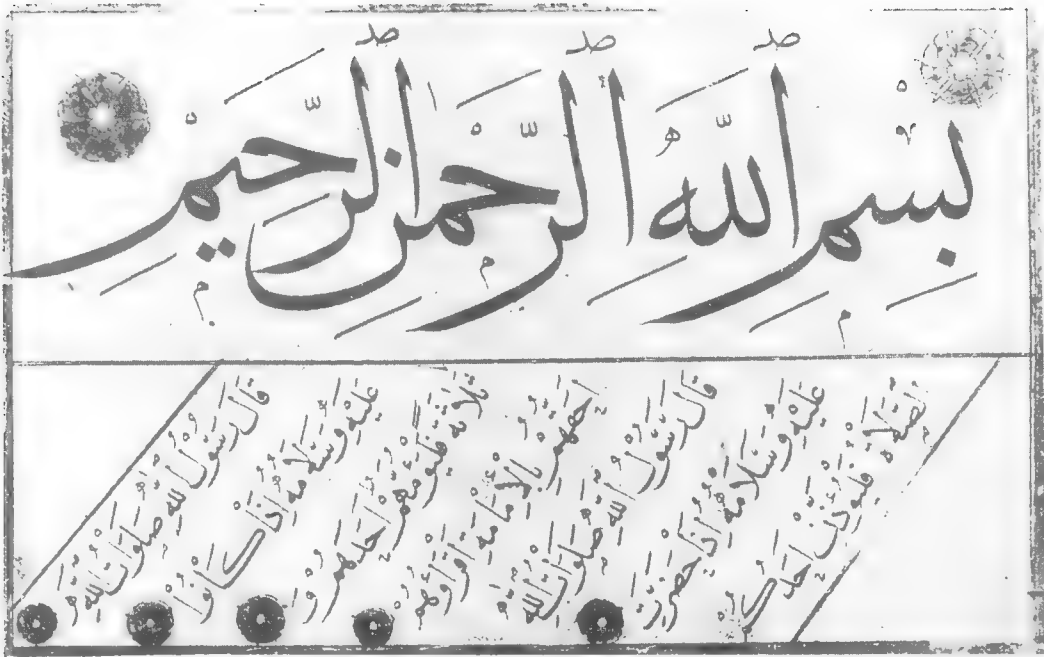 بِسْمِ اللّٰهِ الرَّحْمٰنِ الرَّحِيْمِ
قَالَ رَسُوْلُ اللّٰهِ صَلَوَاتُ اللّٰهِ
عَلَيْهِ وَسَلَامُهُ اِذَا كَانُوْا
ثَلَاثَةً فَلْيَؤُمَّهُمْ اَحَدُهُمْ وَ
اَحَقُّهُمْ بِالْاِمَامَةِ اَقْرَاؤُهُمْ
قَالَ رَسُوْلُ اللّٰهِ صَلَوَاتُ اللّٰهِ
عَلَيْهِ وَسَلَامُهُ اِذَا حَضَرَتِ
الصَّلَاةُ فَلْيُؤَذِّنْ